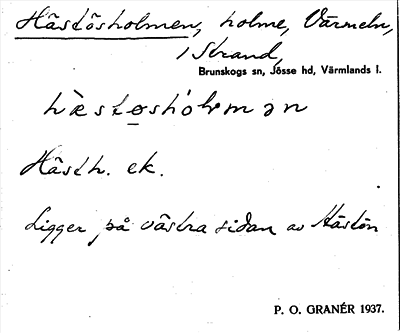 Hästösholmen, holme, Värmeln,
i Strand,
Brunskogs sn, Jösse hd, Värmlands l.
hæ̀støshólmən
Hästh. ek.
Ligger på västra sidan av Hästön
P. O. GRANÉR 1937.